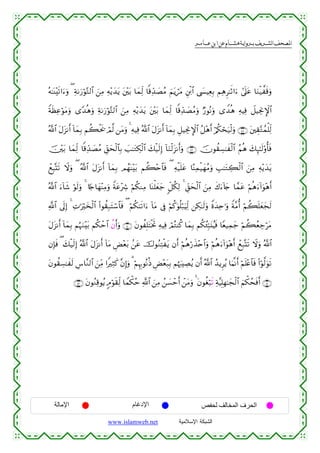 المصحف الشريف برواية هشام عن ابن عامر
وَقَفَّيْنَا عَلَىٰٓ ءَاثَٰرِهِم بِعِيسَى ٱبْنِ مَرْيَمَ مُصَدِّقًا لِّمَا بَيْنَ يَدَيْهِ مِنَ ٱلتَّوْرَىٰةِ ۖ وَءَاتَيْنَٰهُ
ٱلْإِنجِيلَ فِيهِ هُدًى وَنُورٌ وَمُصَدِّقًا لِّمَا بَيْنَ يَدَيْهِ مِنَ ٱلتَّوْرَىٰةِ وَهُدًى وَمَوْعِظَةً
لِّلْمُتَّقِينَ وَلْيَحْكُمْ أَهْلُ ٱلْإِنجِيلِ بِمَآ أَنزَلَ ٱللَّهُ فِيهِ ۚ وَمَن لَّمْ يَحْكُم بِمَآ أَنزَلَ ٱللَّهُ
فَأُوْلَٰٓئِكَ هُمُ ٱلْفَٰسِقُونَ وَأَنزَلْنَآ إِلَيْكَ ٱلْكِتَٰبَ بِٱلْحَقِّ مُصَدِّقًا لِّمَا بَيْنَ
يَدَيْهِ مِنَ ٱلْكِتَٰبِ وَمُهَيْمِنًا عَلَيْهِ ۖ فَٱحْكُم بَيْنَهُم بِمَآ أَنزَلَ ٱللَّهُ ۖ وَلَا تَتَّبِعْ
أَهْوَآءَهُمْ عَمَّا جَآءَكَ مِنَ ٱلْحَقِّ ۚ لِكُلٍّ جَعَلْنَا مِنكُمْ شِرْعَةً وَمِنْهَاجًا ۚ وَلَوْ شَآءَ ٱللَّهُ
لَجَعَلَكُمْ أُمَّةً وَٰحِدَةً وَلَٰكِن لِّيَبْلُوَكُمْ فِي مَآ ءَاتَىٰكُمْ ۖ فَٱسْتَبِقُواْ ٱلْخَيْرَٰتِ ۚ إِلَى ٱللَّهِ
مَرْجِعُكُمْ جَمِيعًا فَيُنَبِّئُكُم بِمَا كُنتُمْ فِيهِ تَخْتَلِفُونَ وَأَنُ ٱحْكُم بَيْنَهُم بِمَآ أَنزَلَ
ٱللَّهُ وَلَا تَتَّبِعْ أَهْوَآءَهُمْ وَٱحْذَرْهُمْ أَن يَفْتِنُوكَ عَنۢ بَعْضِ مَآ أَنزَلَ ٱللَّهُ إِلَيْكَ ۖ فَإِن
تَوَلَّوْاْ فَٱعْلَمْ أَنَّمَا يُرِيدُ ٱللَّهُ أَن يُصِيبَهُم بِبَعْضِ ذُنُوبِهِمْ ۗ وَإِنَّ كَثِيرًا مِّنَ ٱلنَّاسِ لَفَٰسِقُونَ
أَفَحُكْمَ ٱلْجَٰهِلِيَّةِ تَبْغُونَ ۚ وَمَنْ أَحْسَنُ مِنَ ٱللَّهِ حُكْمًا لِّقَوْمٍ يُوقِنُونَ
الحرف المخالف لحفص الإدغام الإمالة
الشبكة الإسلامية www.islamweb.net